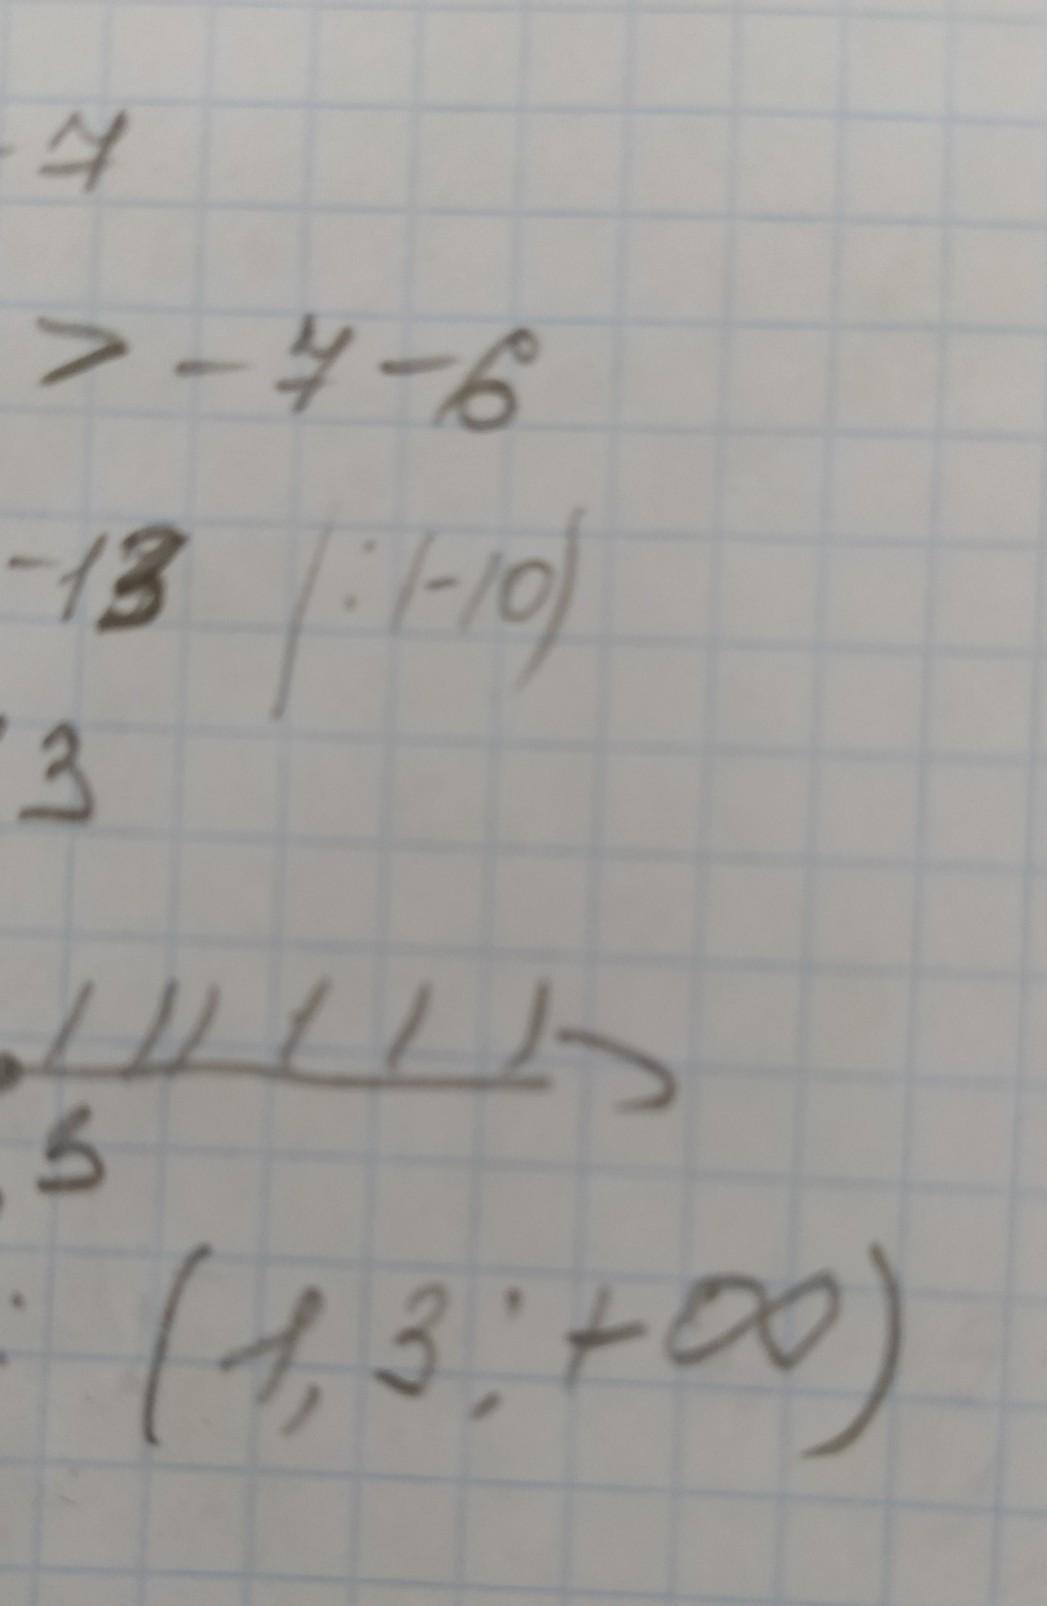 -7
> -7-6
-13 |:(-10)
3
3
: (1,3; +∞)